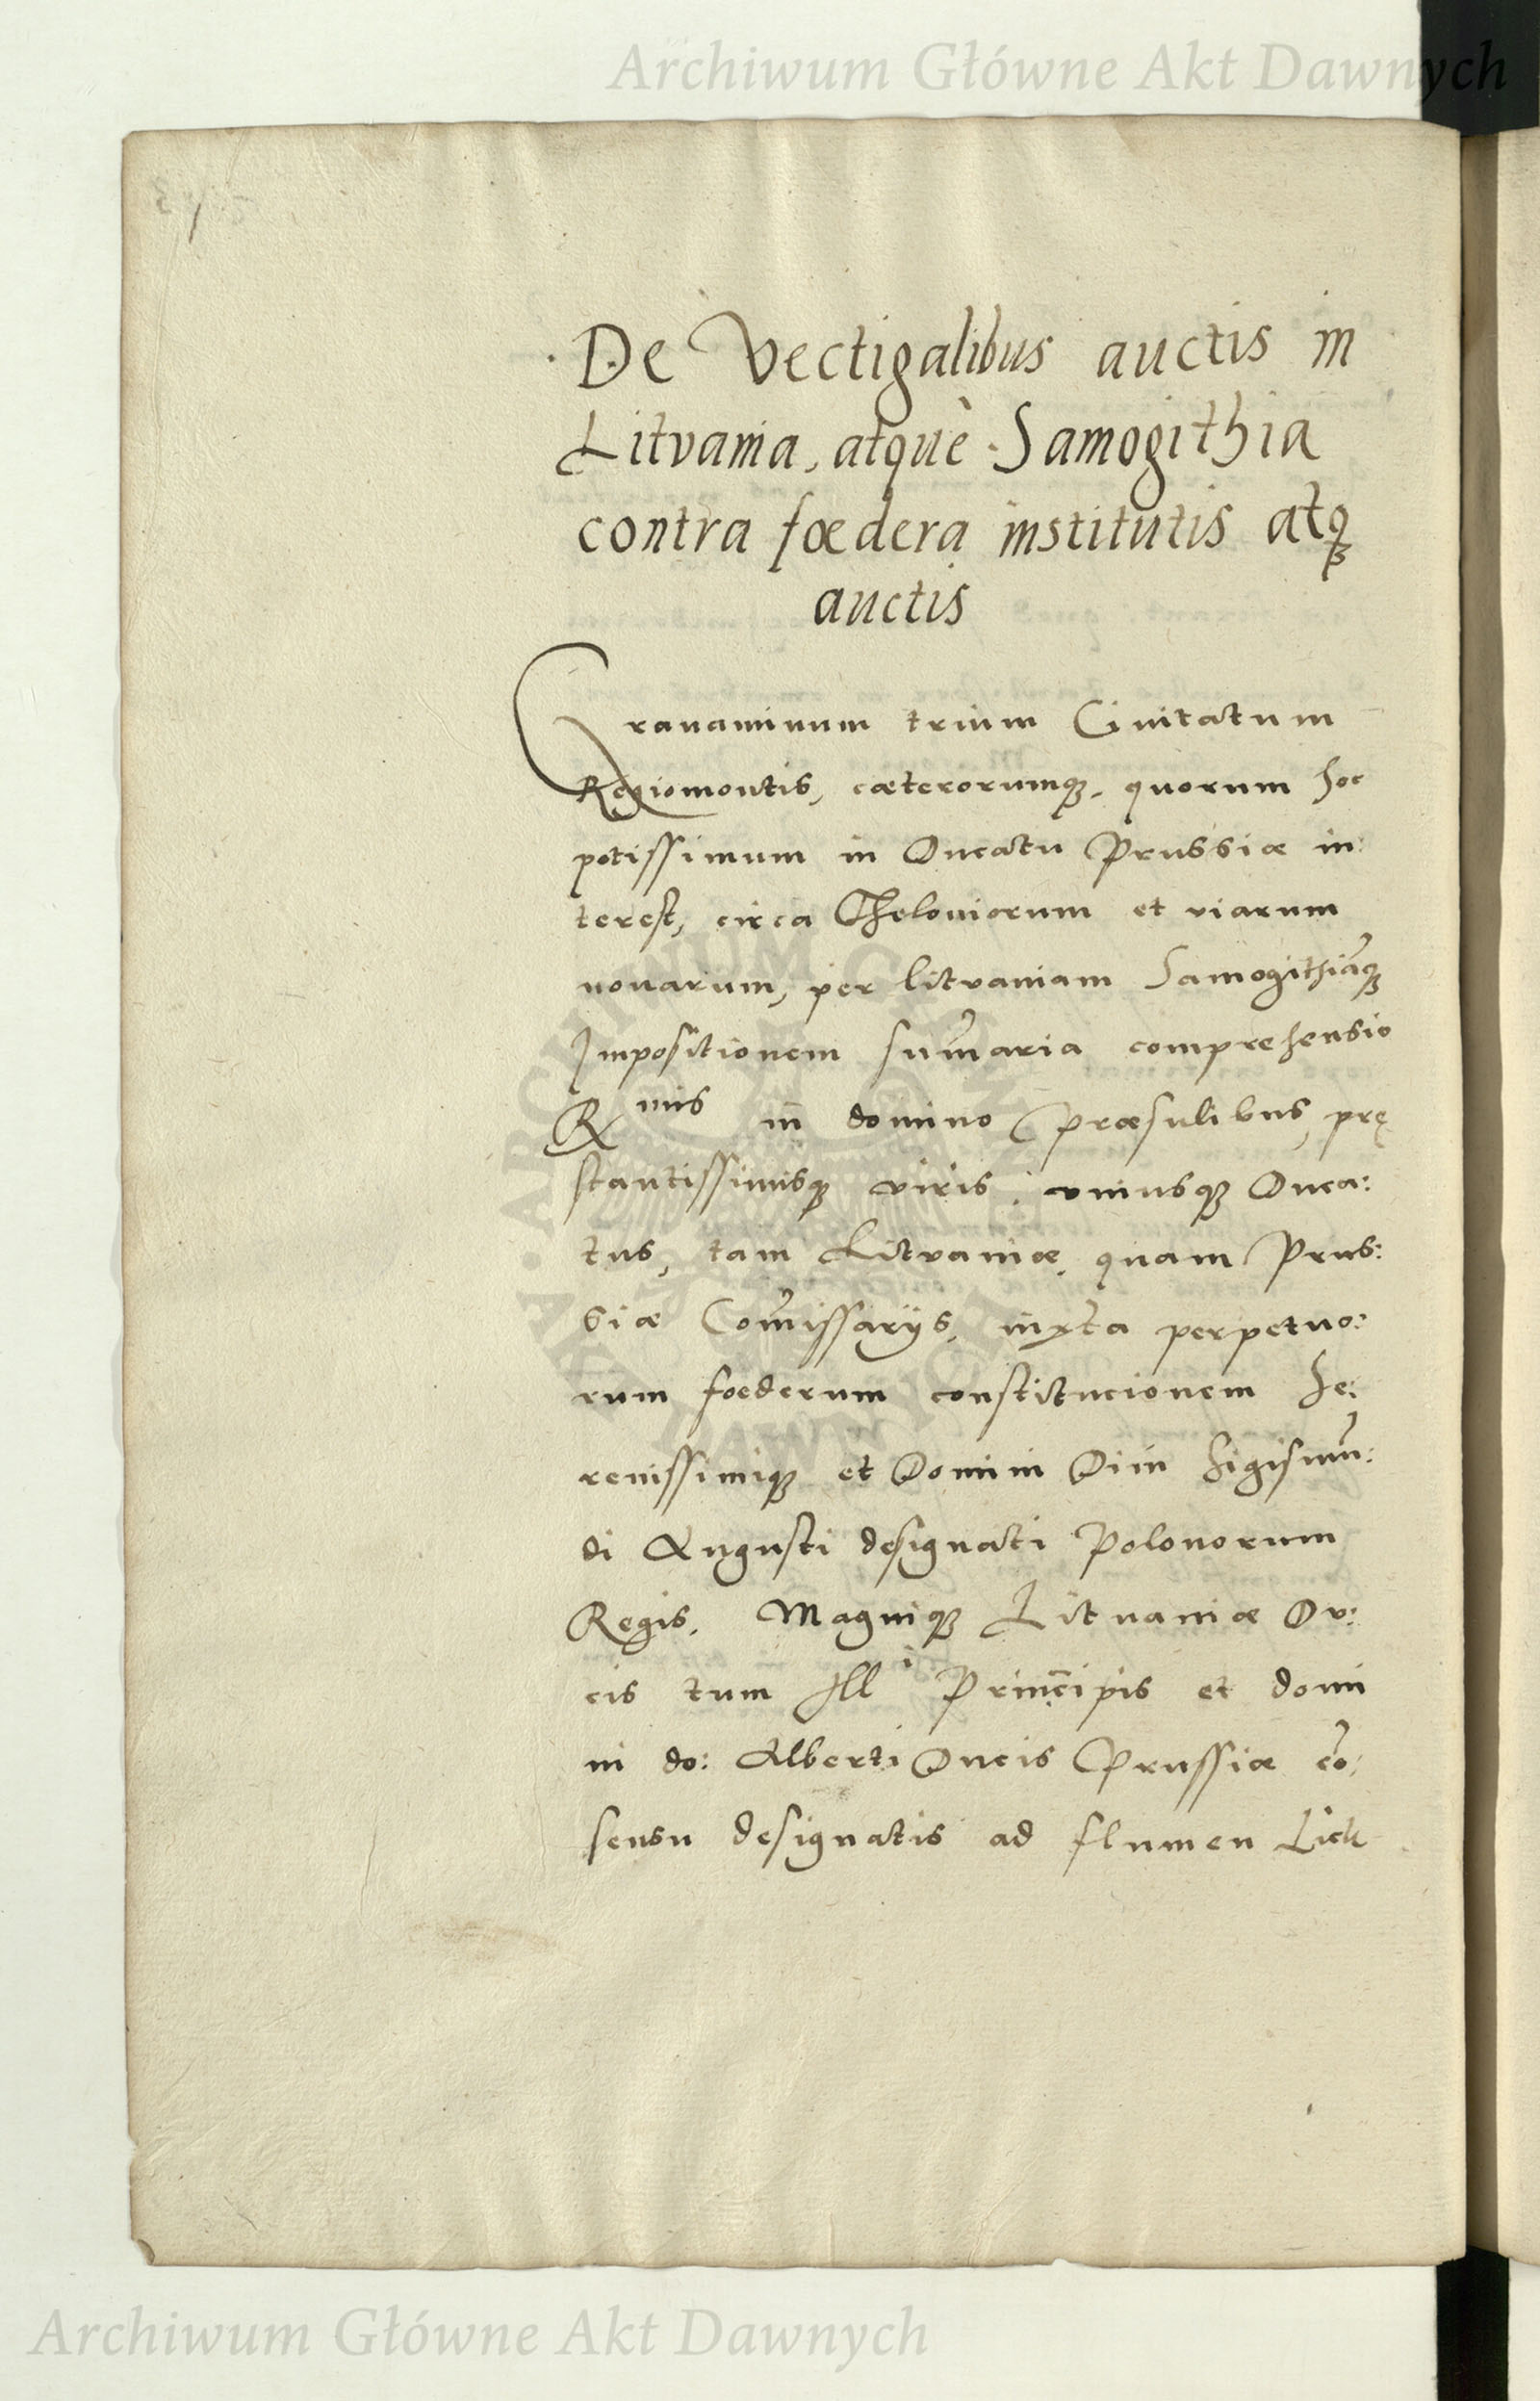 Archiwum Główne Akt Dawnych
De Vectigalibus auctis in
Litvania, atquè Samogithia
contra fœdera institutis atqȝ
auctis
Grauaminum trium Ciuitatum
Regiomontis, cæterorumqȝ, quorum hoc
potissimum in Ducatu Prussiæ in:
terest, circa Theloniorum et viarum
nouarum, per litvaniam Samogithiāqȝ
Impositionem sum̄aria comprehensio
Rmis in domino Præsulibus, prę
stantissimisqȝ viris, vniusqȝ Duca:
tus, tam Litvaniæ quam Prus:
siæ Com̄issarijs, iuxta perpetuo:
rum foederum constitucionem Se:
renissimiqȝ et Domini Diui Sigismūn:
di Augusti designati Polonorum
Regis, Magniqȝ Lituaniæ Du:
cis tum Illi Principis et domi
ni do: Alberti Ducis Prussiæ cō:
sensu designatis ad flumen Lick
Archiwum Główne Akt Dawnych